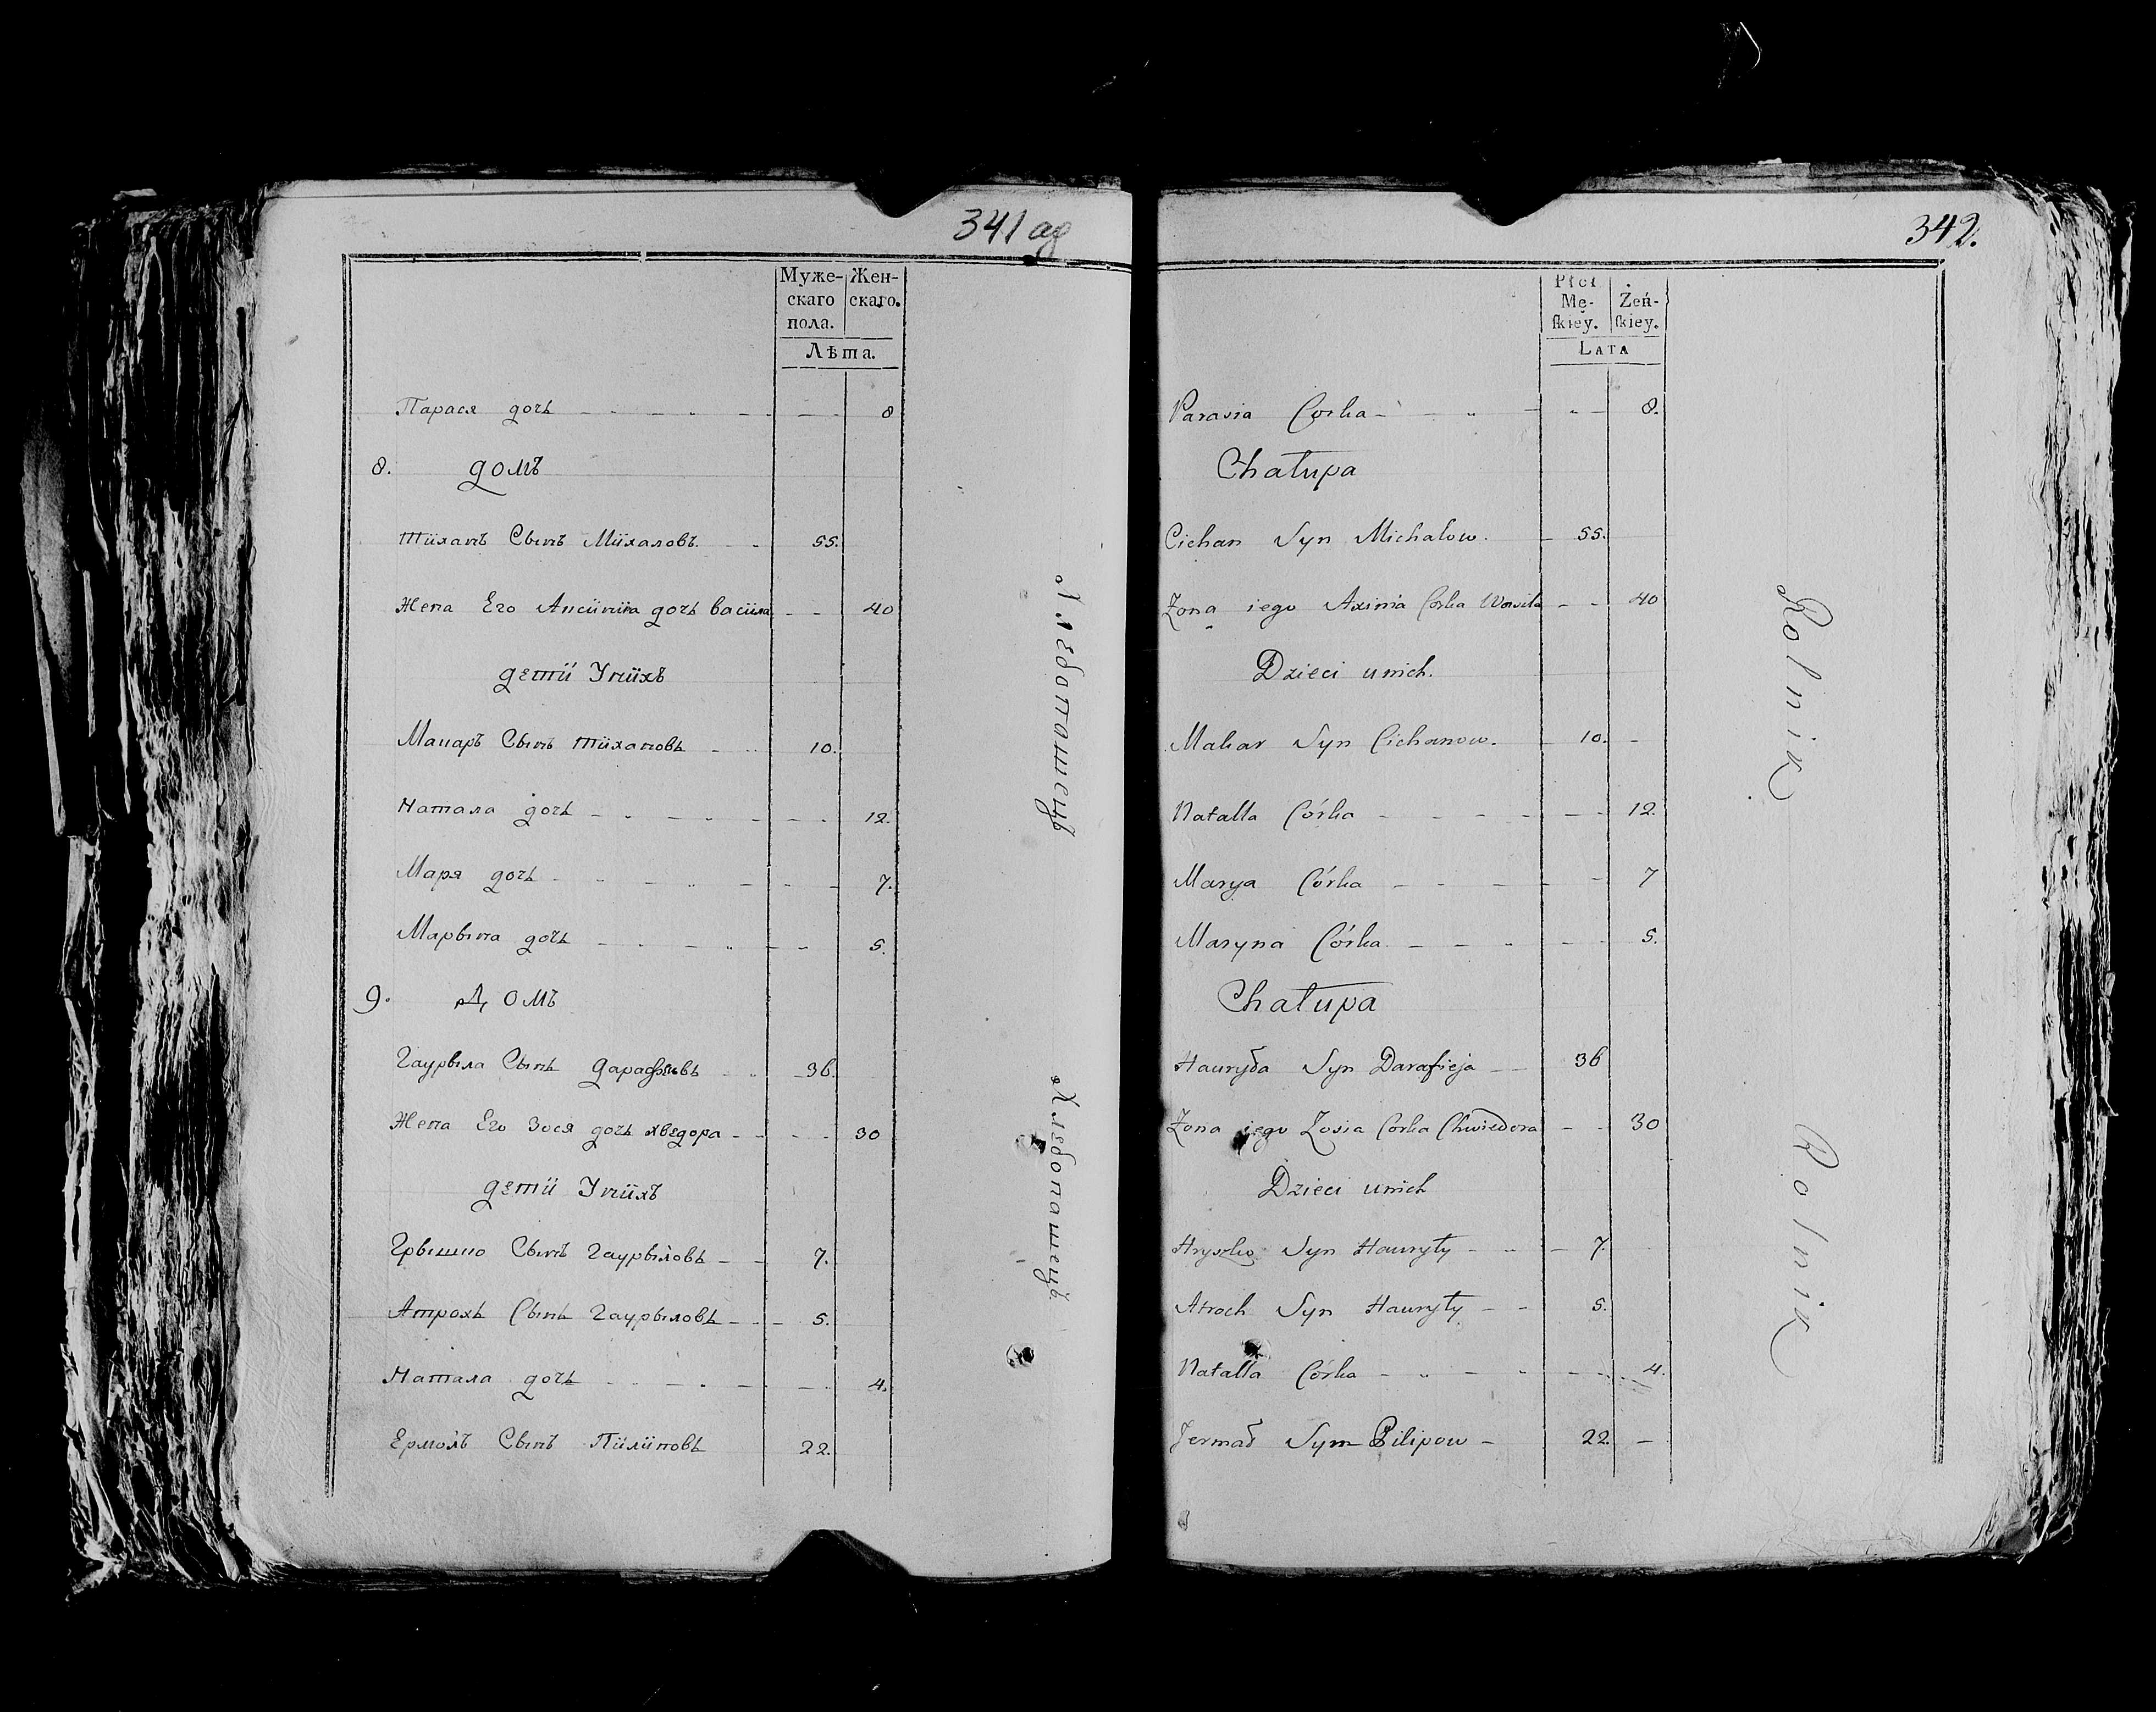 341 аդ
Муже-
скаго
пола.
Жен-
скаго.
Лѣта.
Парася дочь 8
8. домъ
Тиханъ Сынъ Михаловъ 55.
Жена Его Аксиния дочь васила 40
дети Унихъ
Макаръ Сынъ Тихановъ 10.
Натала дочь 12.
Маря дочь 7.
Марына дочь 5.
9. Домъ
Гаурыла Сынъ 36.
Жена Его Зося дочь хведора 30
дети Унихъ
Грышко Сынъ Гаурыловъ 7.
Атрохъ Сынъ Гаурыловъ 5.
Натала дочь 4.
Ермолъ Сынъ Пилиповъ 22.
Хлебопашецъ
Хлебопашецъ
342.
Płci
Mę-
ſkiey.
Żeń-
ſkiey.
Lata
Parasia Corka 8.
Chałupa
Cichan Syn Michalow. 55.
Zona iego Axinia Corka Wasila 40
Dzieci unich.
Makar Syn Cichanow. 10.
Natalla Córka 12.
Marya Córka 7
Maryna Córka 5.
Chałupa
Hauryła Syn Darafieja 36
Zona jego Zosia Corka Chwiedora 30
Dzieci unich
Hryszko Syn Hauryły 7.
Atroch Syn Hauryły 5.
Natalla Córka 4.
Jermał Syn Pilipow 22
Rolnik
Rolnik